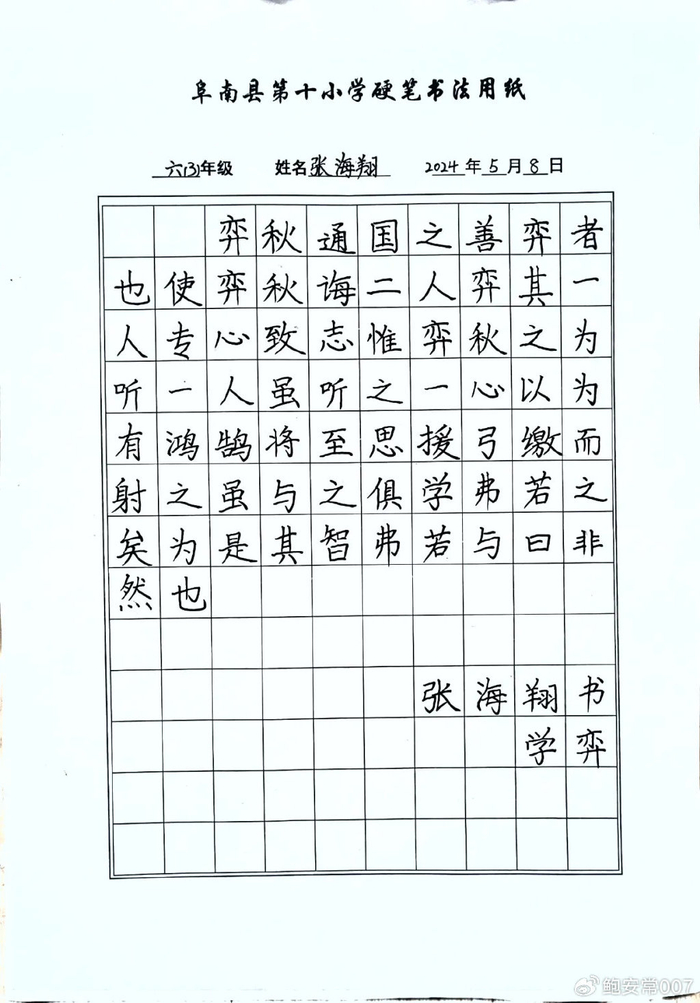 阜南县第十小学硬笔书法用纸
六(3)年级 姓名 张海翔 2024年5月8日
弈秋通国之善弈者
也使弈秋诲二人弈其一
人专心致志惟弈秋之为
听一人虽听之一心以为
有鸿鹄将至思援弓缴而
射之虽与之俱学弗若之
矣为是其智弗若与曰非
然也
张海翔书
学弈
@鲍安常007